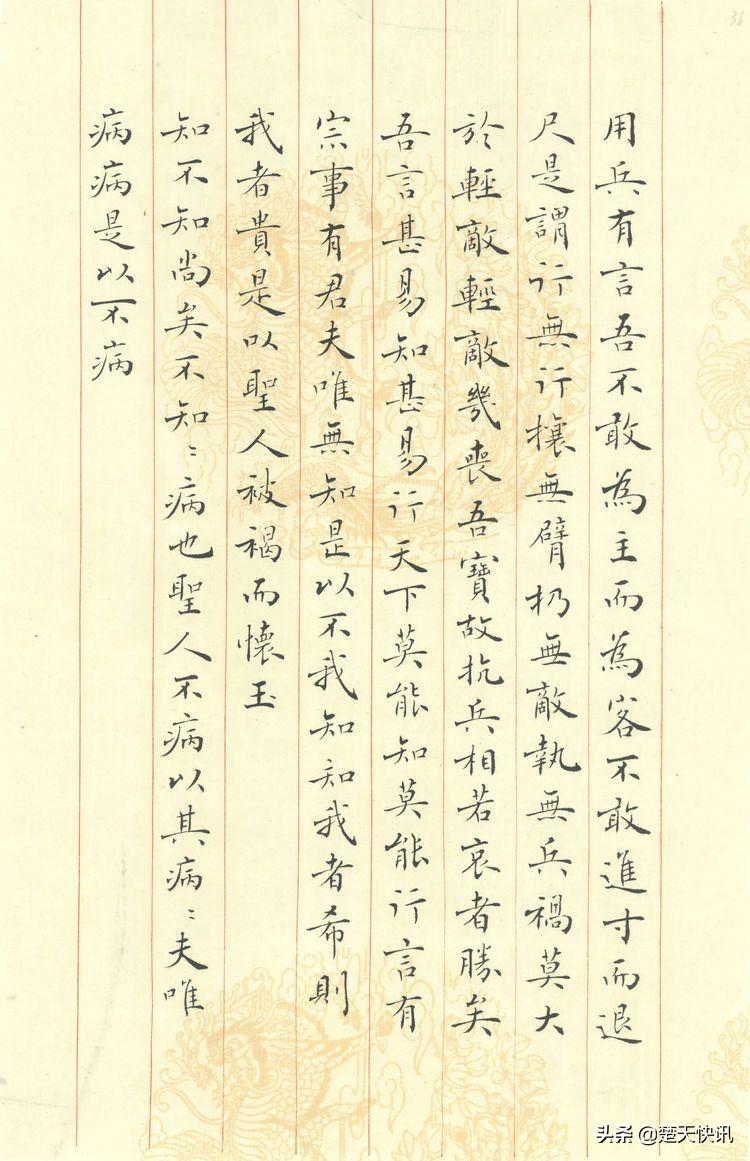 36
用兵有言吾不敢為主而為客不敢進寸而退
尺是謂行無行攘無臂扔無敵執無兵禍莫大
於輕敵輕敵幾喪吾寶故抗兵相若哀者勝矣
吾言甚易知甚易行天下莫能知莫能行言有
宗事有君夫唯無知是以不我知知我者希則
我者貴是以聖人被褐而懷玉
知不知尚矣不知〻病也聖人不病以其病〻夫唯
病病是以不病
头条 @楚天快讯